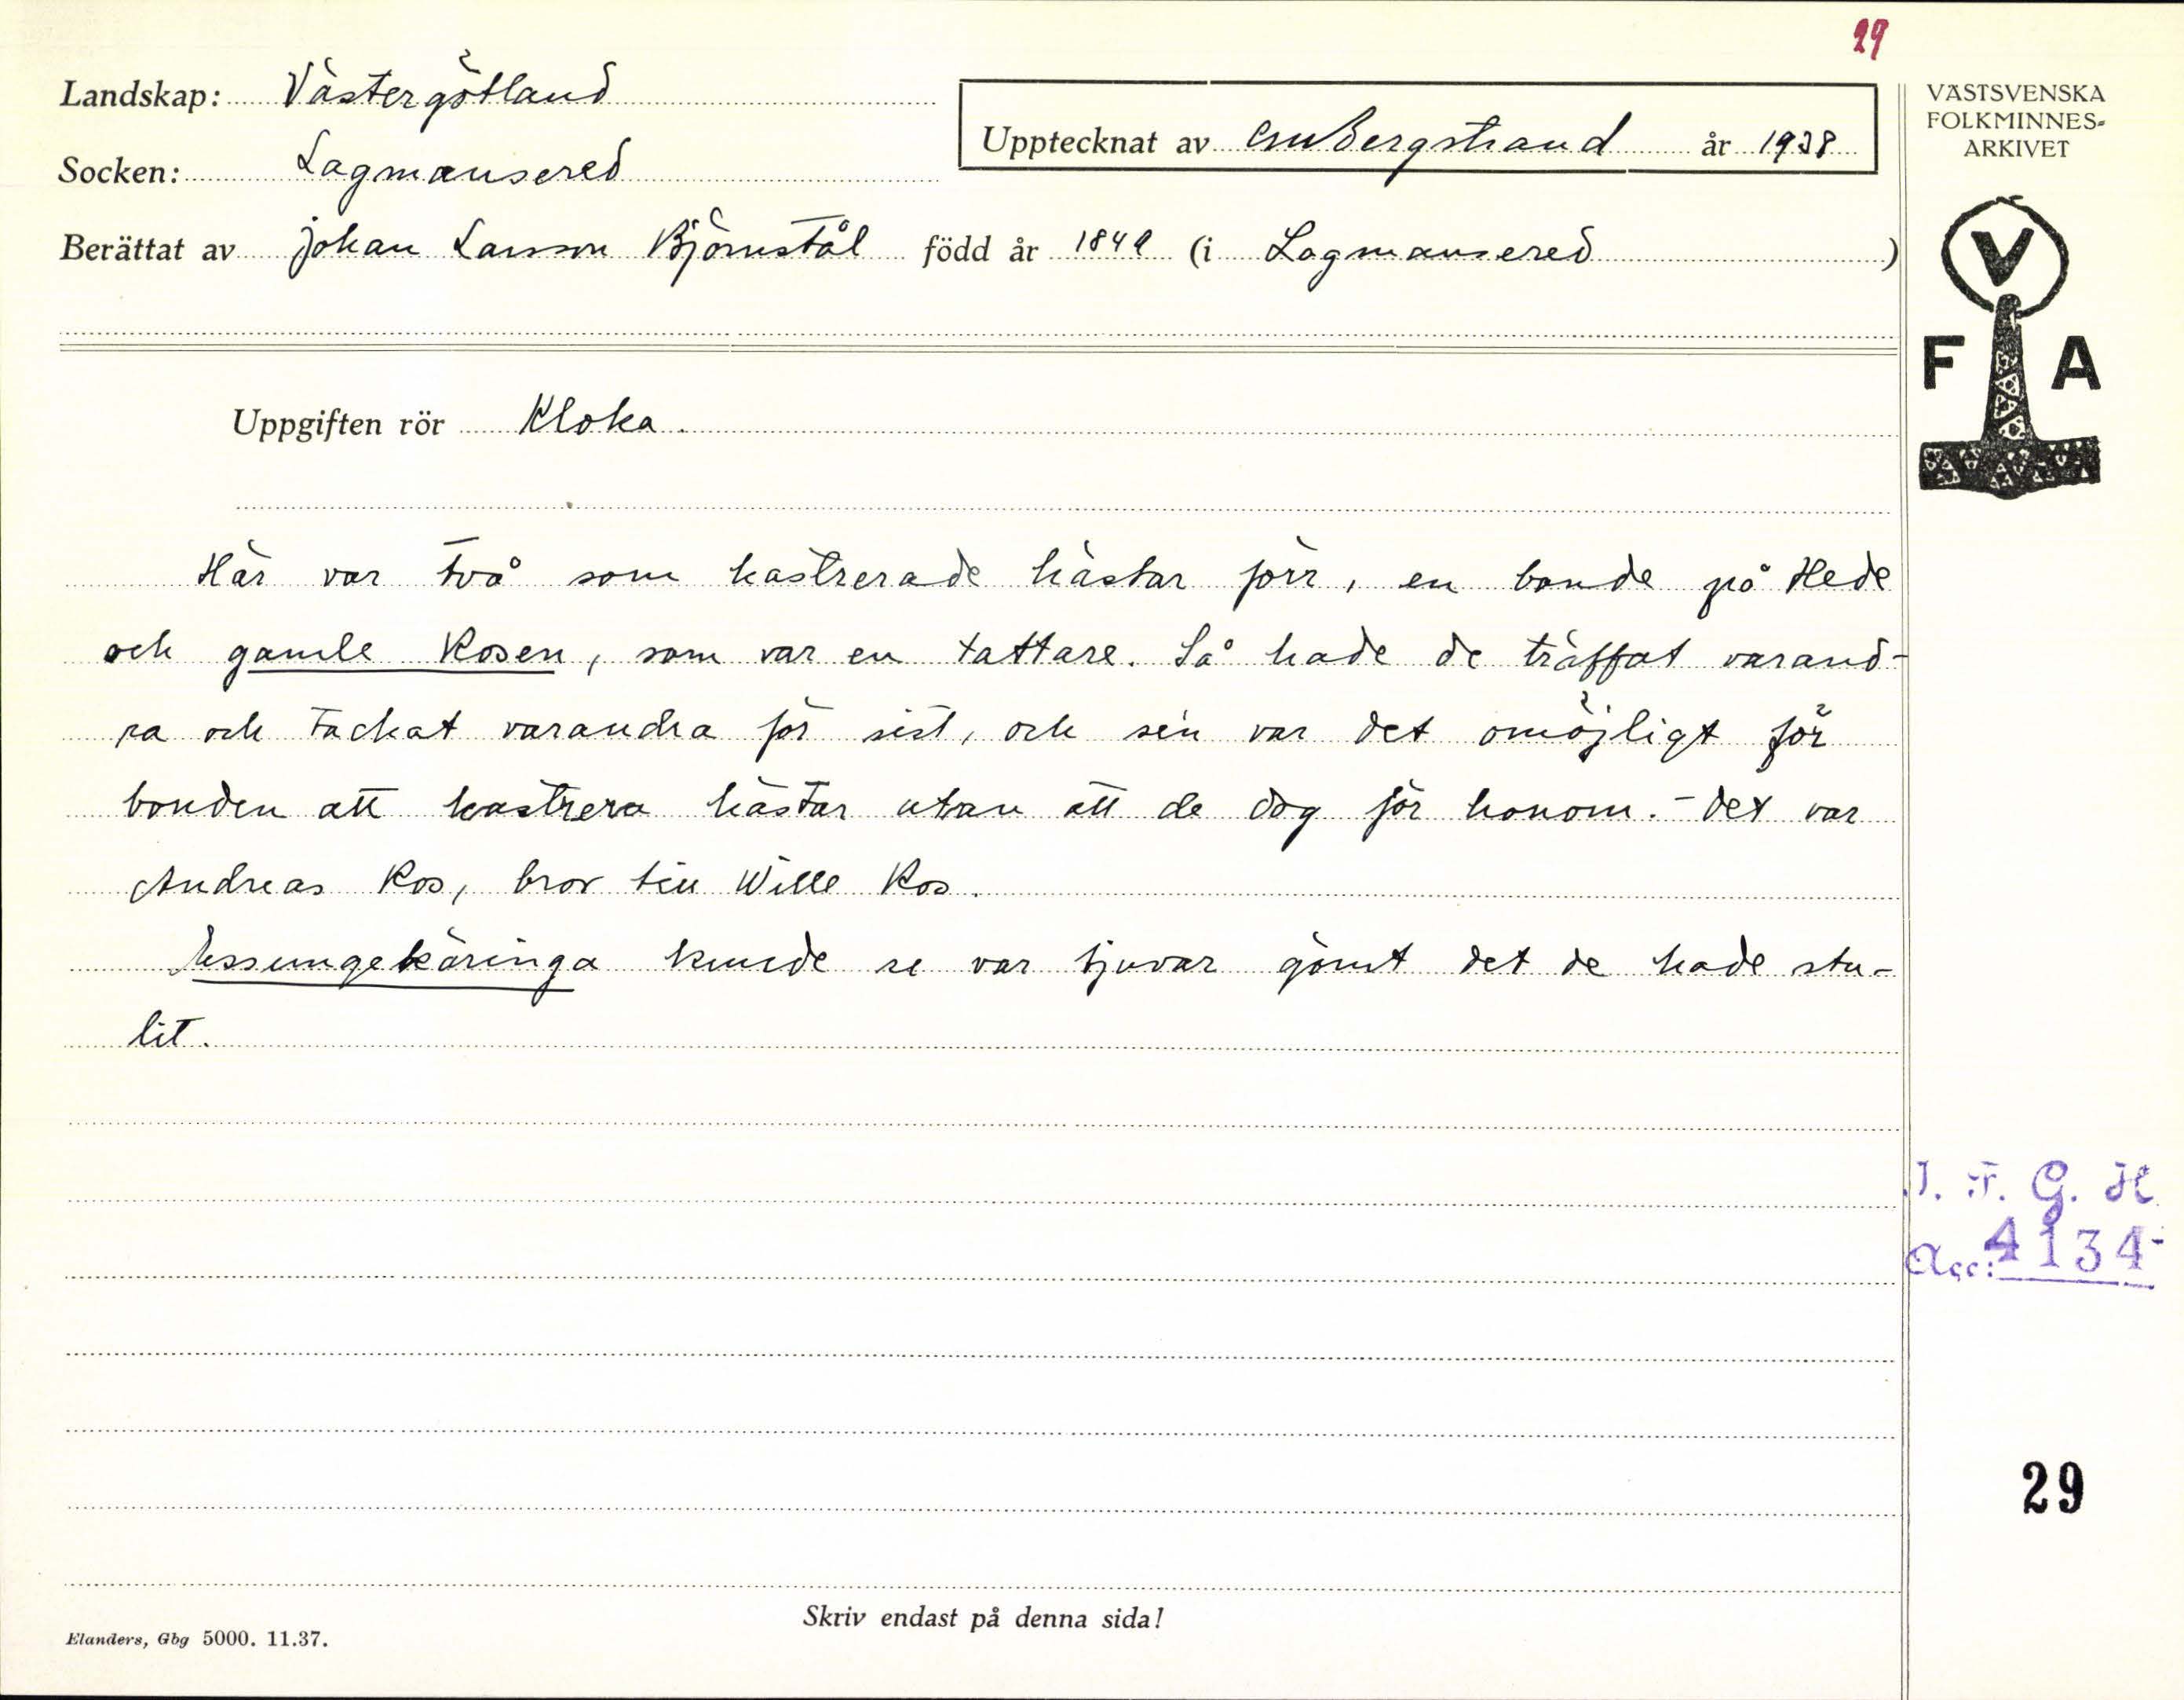 29
Landskap: Västergötland
Upptecknat av CM Bergstrand år 1938
Socken: Lagmansered
Berättat av Johan Larsson Björnstål född år 1849 (i Lagmansered )
VÄSTSVENSKA
FOLKMINNES-
ARKIVET
V
F A
Uppgiften rör Kloka.
Här var två som kastrerade hästar förr, en bonde på Hede
och gamle Rosen, som var en tattare. Så hade de träffat varand-
ra och tackat varandra för sist, och sen var det omöjligt för
bonden att kastrera hästar utan att de dog för honom. - Det var
Andreas Ros, bror till Wille Ros.
kunde se var tjuvar gömt det de hade stu-
lit.
I. F. G. H.
Acc: 4134
29
Skriv endast på denna sida!
Elanders, Gbg 5000. 11.37.